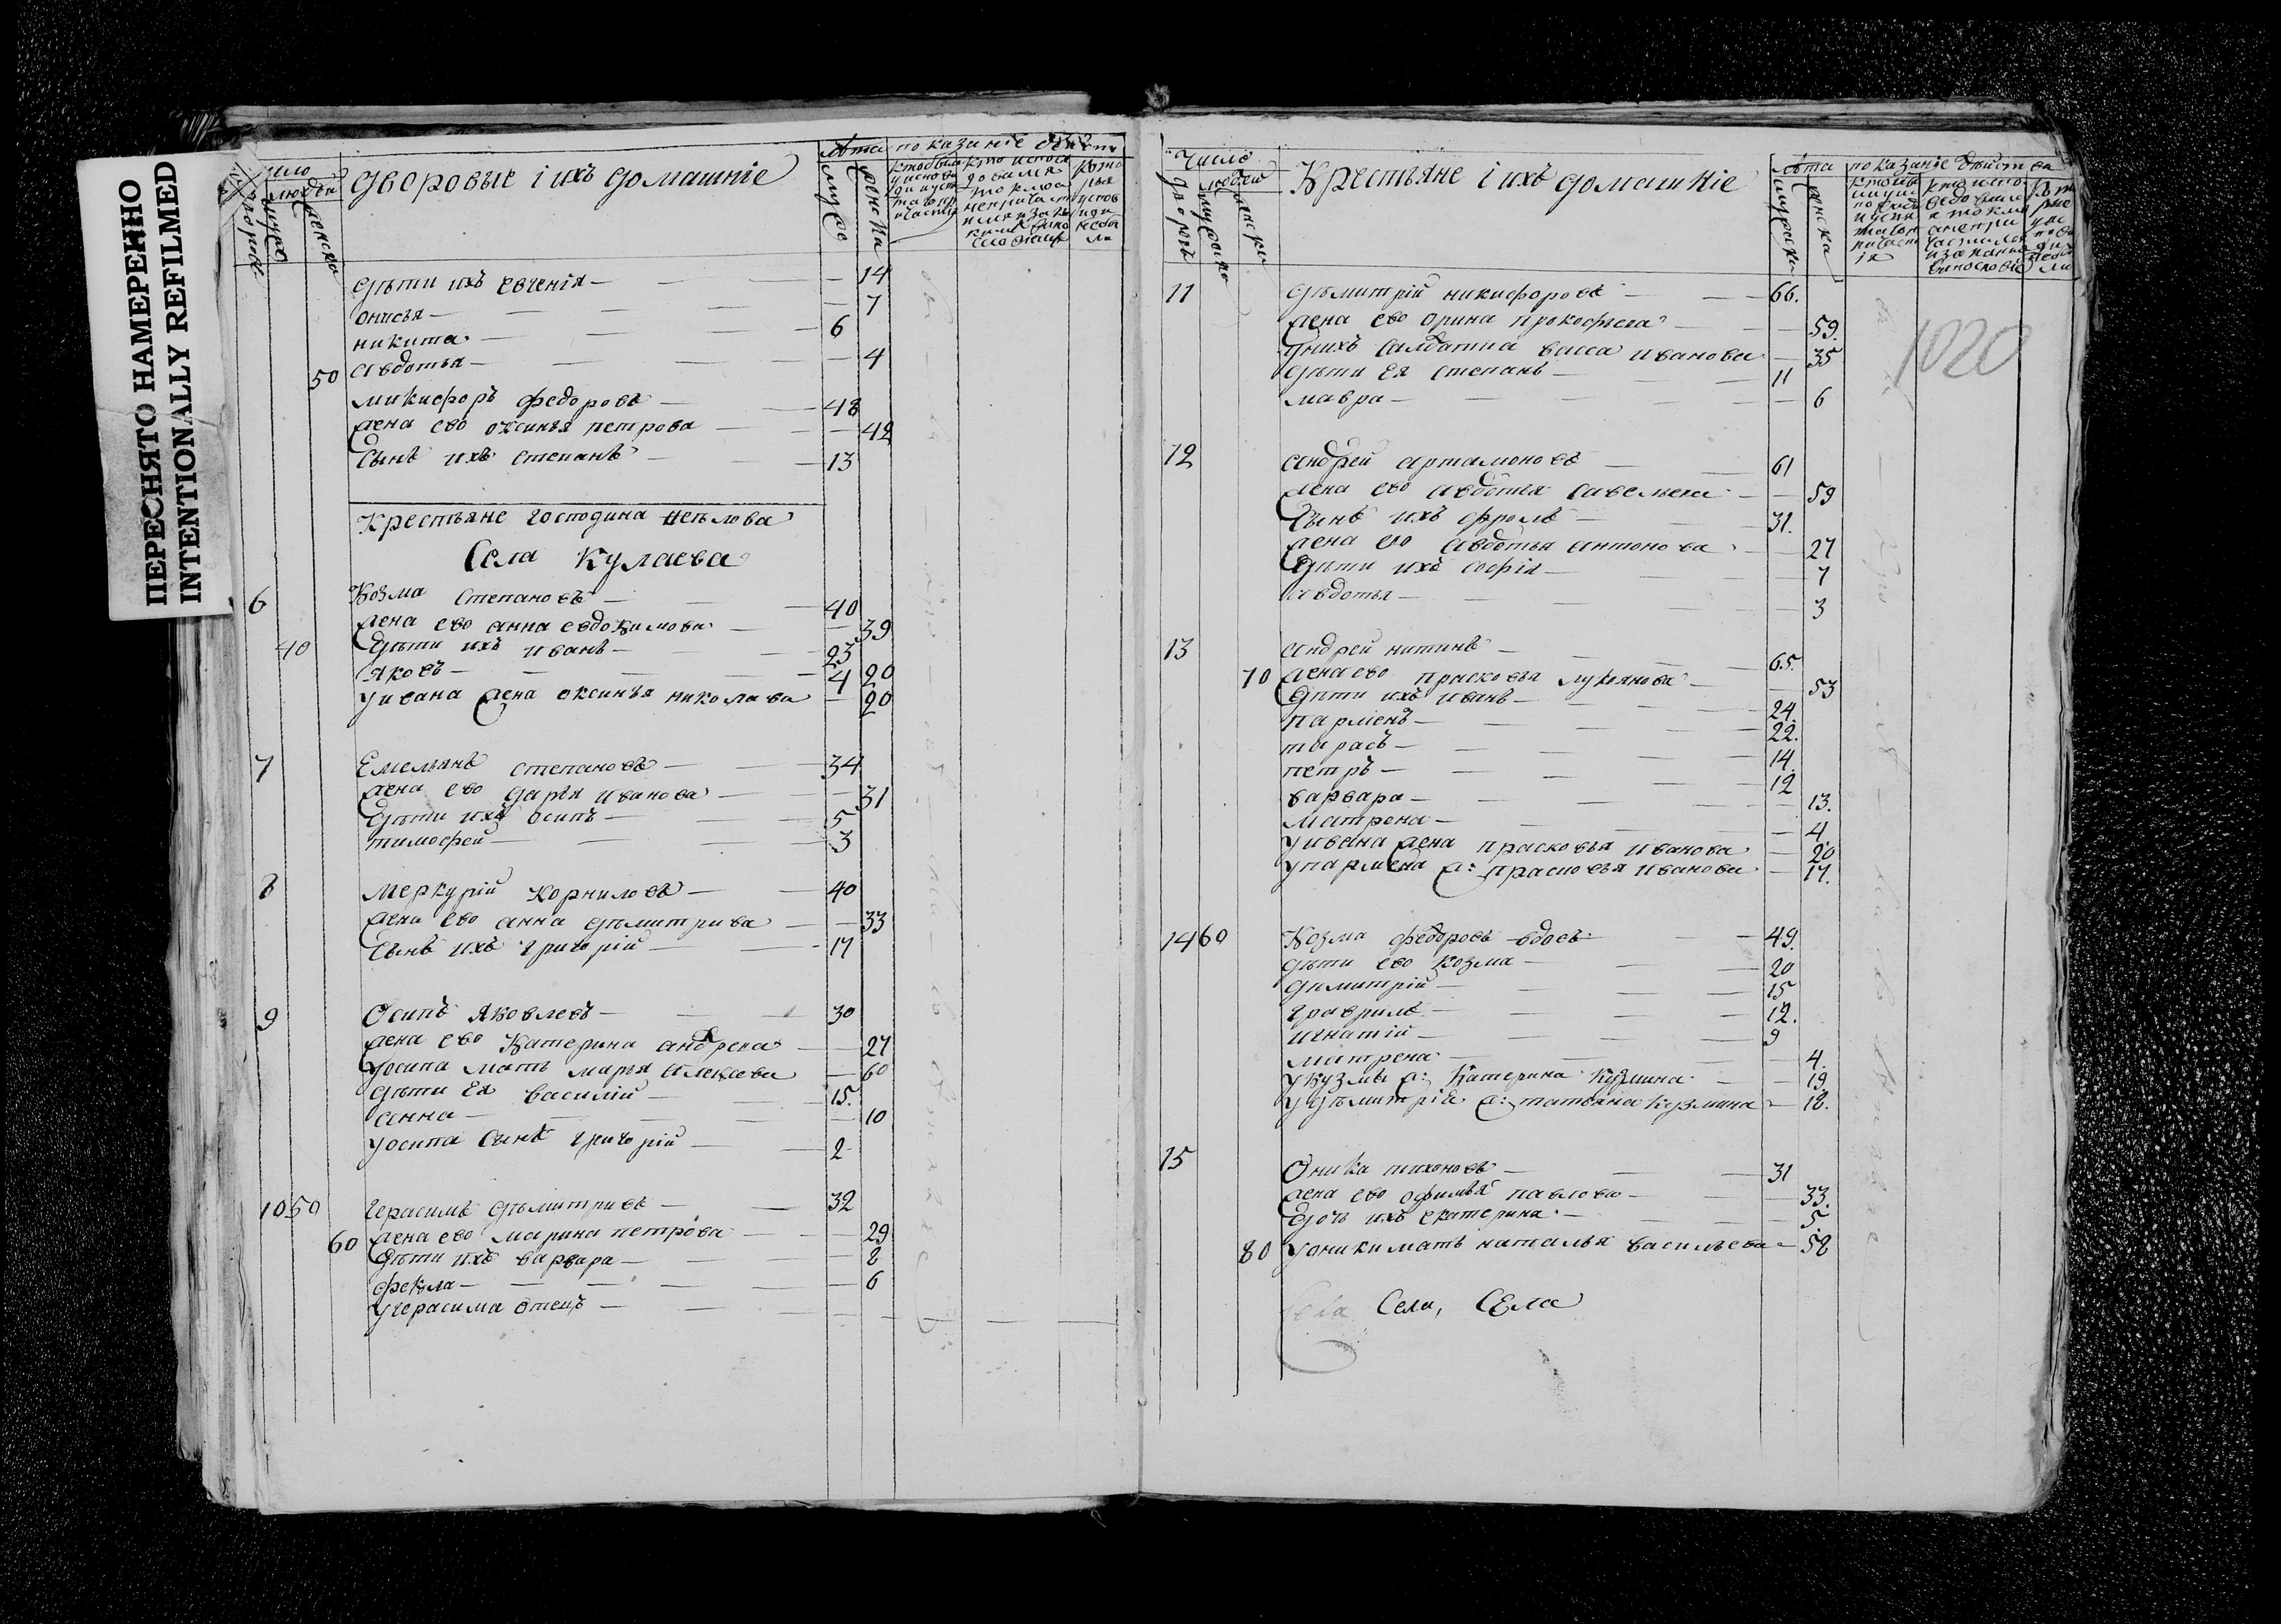 ПЕРЕСНЯТО НАМЕРЕННО
INTENTIONALLY REFILMED
число
людей
дворовые і ихъ домашніе
лѣта показаніе
дѣти ихъ евгенія — 14
онисья — 7
никита — 6
50 авдотья — 4
микифоръ федоровъ — 48
жена ево оксинья петрова — 42
сынъ ихъ степанъ — 13
Крестьяне господина
Села Кулаева
6 Козма степановъ — 40
жена ево анна евдокимова — 39
40 дѣти ихъ иванъ — 23
яковъ — 4 20
уивана жена оксинья николаева — 20
7 Емельянъ степановъ — 34
жена ево дарья иванова — 31
дѣти ихъ осипъ — 5
тимофей — 3
8 меркурій корниловъ — 40
жена ево анна дьмитрива — 33
сынъ ихъ григорій — 17
9 Осипъ яковлевъ — 30
жена ево катерина андрева — 27
уосипа мать марья — 60
дѣти ея василій — 15.
анна — 10
уосипа сынъ григорій — 2
10 50 герасимъ дьмитривъ — 32
60 жена ево марина петрова — 29
дѣти ихъ варвара — 8
фекла — 6
угерасима отецъ —
Число
людей
Крестьяне і ихъ домашніе
лѣта показанье
1020
11 дьмитрій никифоровъ — 66.
жена ево орина прокофьева — 59.
унихъ салдатка васса иванова — 35
дѣти ея степанъ — 11
мавра — 6
12 андрей артамоновъ — 61
жена ево авдотья савельева — 59
сынъ ихъ фролъ — 31.
жена ево авдотья антонова — 27
дѣти ихъ софія — 7
авдотья — 3
13 андрей никитинъ — 65.
70 жена ево прасковья лукоянова — 53
дѣти ихъ иванъ — 24.
парменъ — 22.
тарасъ — 14.
петръ — 12
варвара — 13.
матрена — 4.
уивана жена прасковья иванова — 20
упармена ж: прасковья иванова — 17.
14 60 Козма федоровъ вдовъ — 49.
дѣти ево козма — 20
димитрій — 15
гаврилъ — 12.
игнатій — 9
матрена — 4.
укузмы ж: катерина кузмина — 19.
удьмитрія ж: татьяна кузмина — 18.
15 Оника тихоновъ — 31
жена ево офимья павлова — 33.
дочь ихъ екатерина — 5.
80 уоники мать наталья васильева — 58
Села, Села